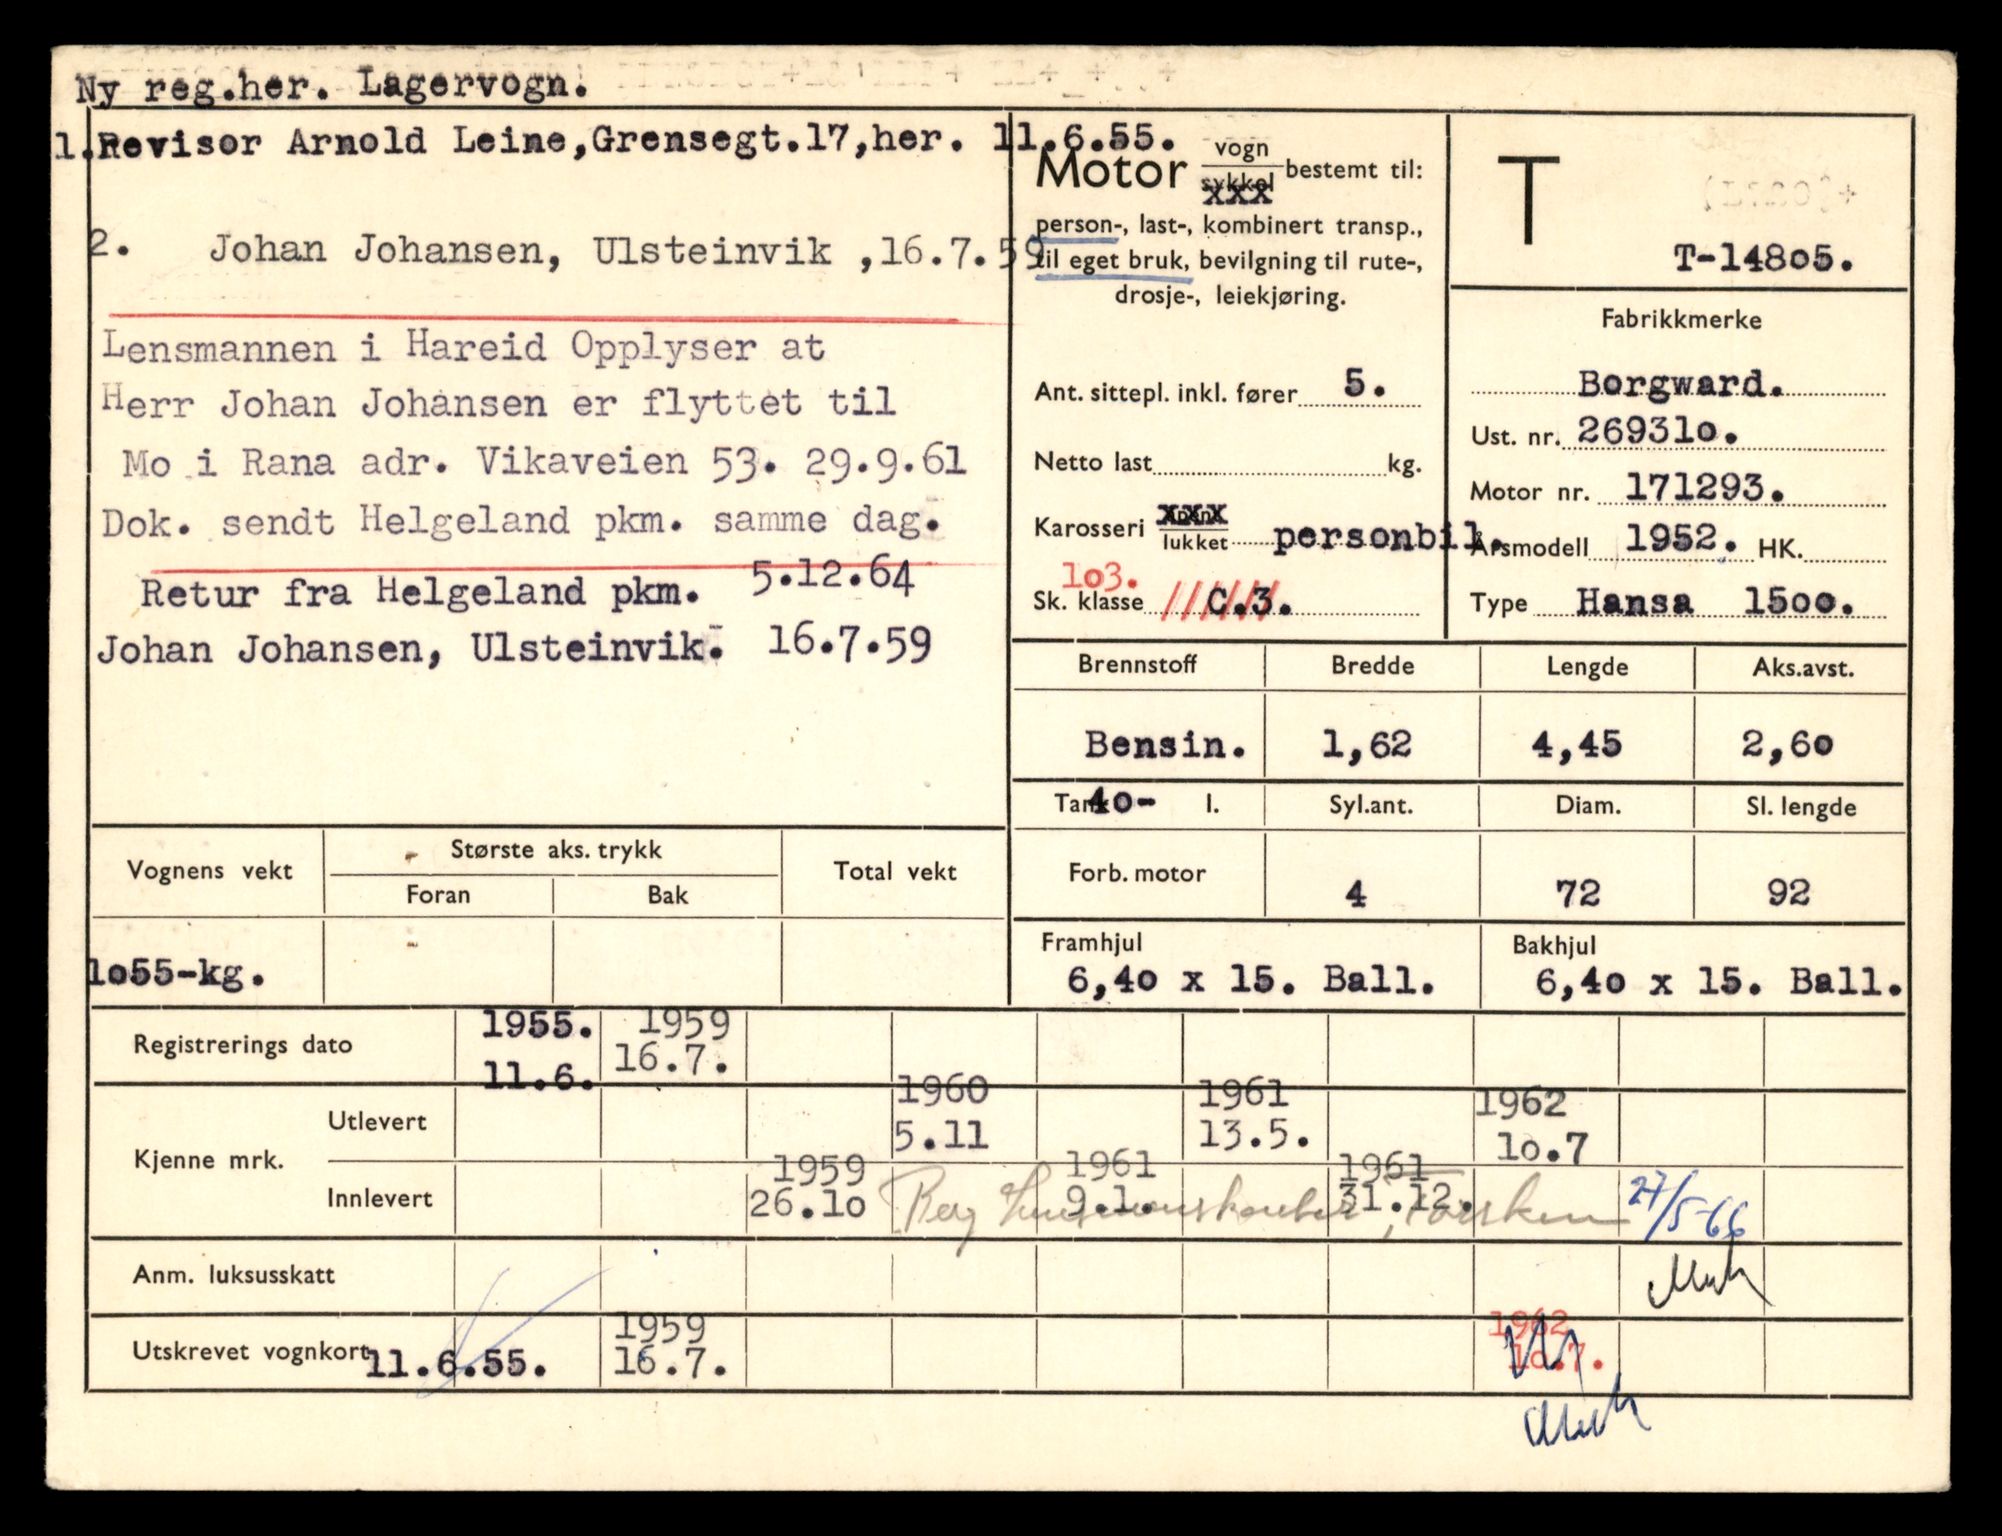 Ny reg.her. Lagervogn.
1.Revisor Arnold Leine,Grensegt.17,her. 11.6.55.
2. Johan Johansen, Ulsteinvik ,16.7.59
Lensmannen i Hareid Opplyser at
Herr Johan Johansen er flyttet til
Mo i Rana adr. Vikaveien 53. 29.9.61
Dok. sendt Helgeland pkm. samme dag.
Retur fra Helgeland pkm. 5.12.64
Johan Johansen, Ulsteinvik. 16.7.59
Motor vogn sykkel xxx bestemt til:
person-, last-, kombinert transp.,
til eget bruk, bevilgning til rute-,
drosje-, leiekjøring.
Ant. sittepl. inkl. fører 5.
Netto last kg.
Karosseri xxx lukket personbil.
103.
Sk. klasse ////// C.3.
T
T-14805.
Fabrikkmerke
Borgward.
Ust. nr. 269310.
Motor nr. 171293.
Årsmodell 1952. HK.
Type Hansa 1500.
Brennstoff Bredde Lengde Aks.avst.
Bensin. 1,62 4,45 2,60
Tank 40- l. Syl.ant. Diam. Sl. lengde
Forb. motor 4 72 92
Framhjul Bakhjul
6,40 x 15. Ball. 6,40 x 15. Ball.
Vognens vekt Største aks. trykk Total vekt
Foran Bak
1055-kg.
Registrerings dato 1955. 11.6. 1959 16.7.
Kjenne mrk.
Utlevert 1960 5.11 1961 13.5. 1962 10.7
Innlevert 1959 26.10 1961 9.1. 1961 31.12. 27/5-66
Berg
Anm. luksusskatt
Utskrevet vognkort 11.6.55. 1959 16.7. 1962 10.7.